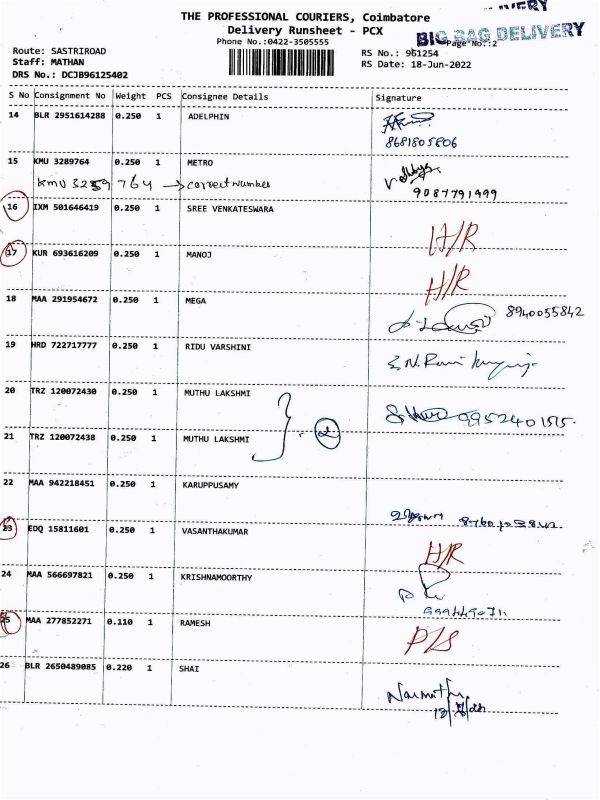 THE PROFESSIONAL COURIERS, Coimbatore
Delivery Runsheet - PCX
Phone No.:0422-3505555
BIG BAG DELIVERY
Page No.:2
Route: SASTRIROAD
Staff: MATHAN
DRS No.: DCJB96125402
RS No.: 961254
RS Date: 18-Jun-2022
S No Consignment No Weight PCS Consignee Details Signature
14 BLR 2951614288 0.250 1 ADELPHIN
8681805806
15 KMU 3289764 0.250 1 METRO
KMU 3259764 → correct number
9087791999
16 IXM 501646419 0.250 1 SREE VENKATESWARA
H/R
17 KUR 693616209 0.250 1 MANOJ
H/R
18 MAA 291954672 0.250 1 MEGA
8940055842
19 HRD 722717777 0.250 1 RIDU VARSHINI
20 TRZ 120072430 0.250 1 MUTHU LAKSHMI
9952401515.
21 TRZ 120072438 0.250 1 MUTHU LAKSHMI
2
22 MAA 942218451 0.250 1 KARUPPUSAMY
23 EDQ 15811601 0.250 1 VASANTHAKUMAR
H/R
24 MAA 566697821 0.250 1 KRISHNAMOORTHY
25 MAA 277852271 0.110 1 RAMESH
P/S
26 BLR 2650489085 0.220 1 SHAI